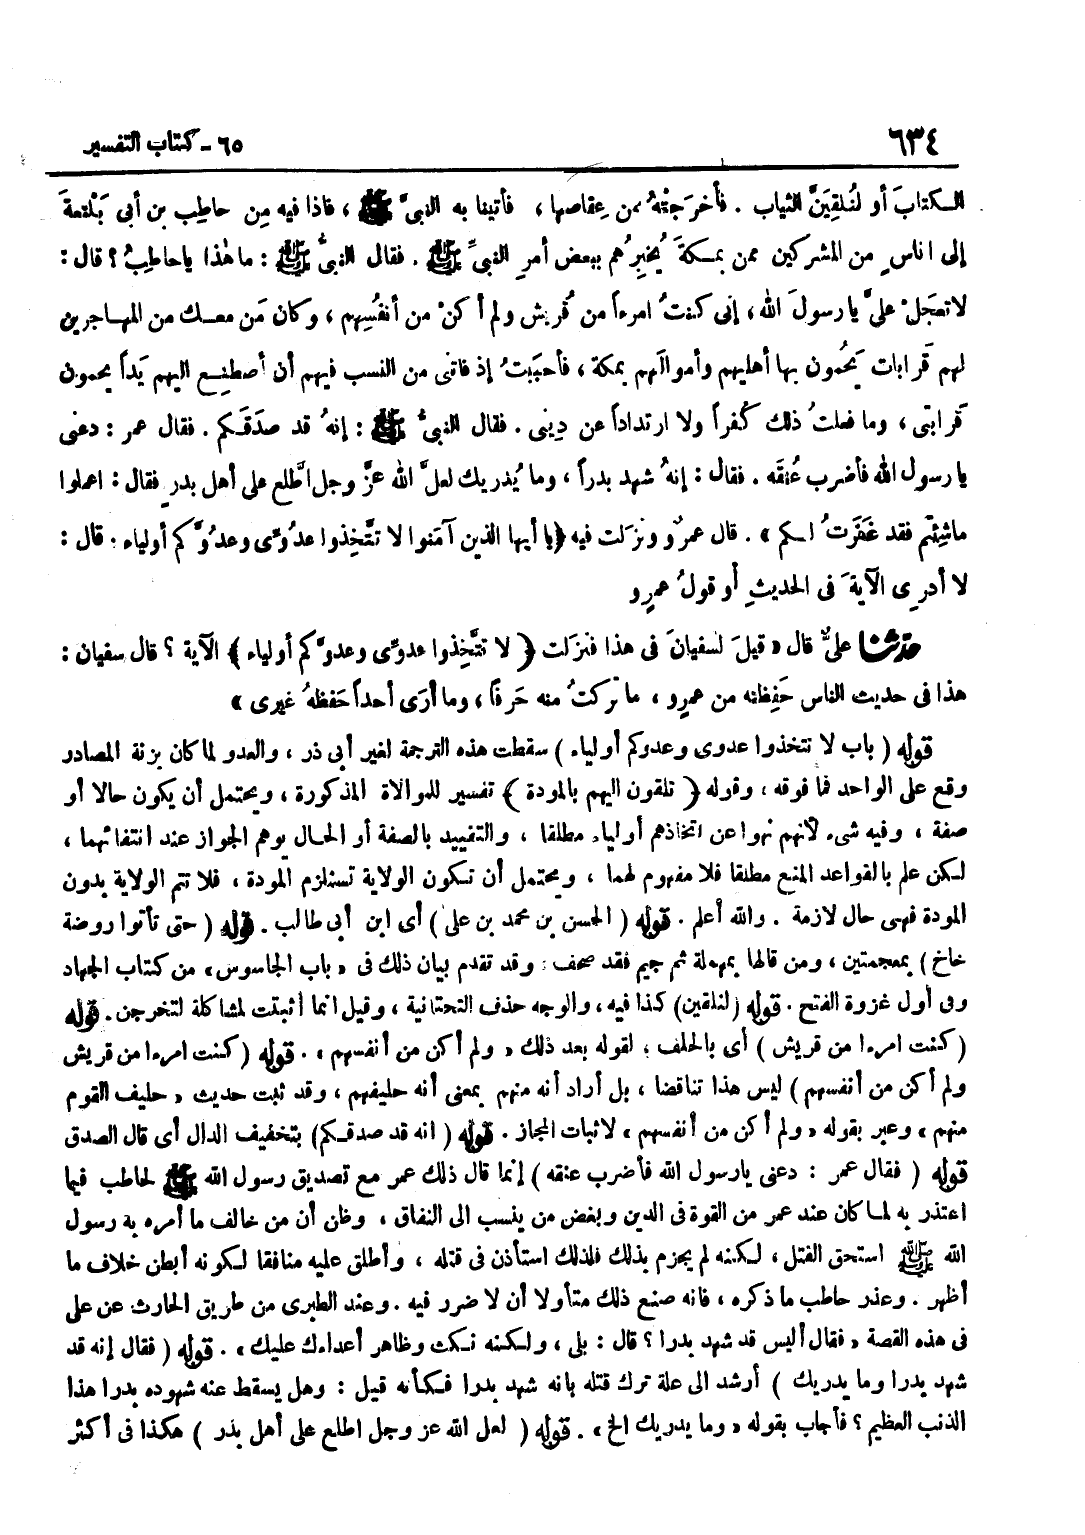 ٦٣٤
٦٥ - كتاب التفسير
الكتابَ أو لنُلقِيَنَّ الثياب . فأخرجَتْهُ من عِقاصِها ، فأتينا به النبيَّ ﷺ ، فاذا فيه مِن حاطِب بن أبي بَلتعةَ
إلى اناسٍ من المشركين ممن بمكةَ يُخبِرُهم ببعض أمرِ النبيِّ ﷺ . فقال النبيُّ ﷺ : ما هٰذا ياحاطِبُ ؟ قال :
لاتعجَلْ عليَّ يارسولَ الله ، إنى كنتُ امرءاً من قُريش ولم أكنْ من أنفُسِهم ، وكان مَن معك من المهاجرين
لهم قَرابات يَحْمُون بها أهليهم وأموالهم بمكة ، فأحبَبتُ إذ فاتنى من النسب فيهم أن أصطنِع اليهم يَداً يحمون
قَرابتى ، وما فعلتُ ذلك كُفراً ولا ارتداداً عن دِينى . فقال النبيُّ ﷺ : إنهُ قد صدَقَكم . فقال عمر : دعنى
يارسول الله فأضرب عُنقَه . فقال : إنهُ شهد بدراً ، وما يُدريك لعلَّ الله عزَّ وجل اطَّلع على أهل بدرٍ فقال : اعملوا
ماشِئتم فقد غَفَرتُ لكم » . قال عمرٌو ونزلت فيه ﴿ يا أيها الذين آمَنوا لا تتَّخِذوا عدُوِّى وعدُوَّكم أولياء . قال :
لا أدرِى الآيةَ فى الحديثِ أو قولُ عمرٍو
حَدَّثَنا عليٌّ قال « قيلَ لسفيانَ فى هذا فنزلت ﴿ لا تتَّخِذوا عدوِّى وعدوَّكم أولياء ﴾ الآية ؟ قال سفيان :
هذا فى حديث الناس حَفِظته من عمرٍو ، ما تركتُ منه حَرفاً ، وما أرَى أحداً حَفظهُ غيرى »
قوله ( باب لا تتخذوا عدوى وعدوكم أولياء ) سقطت هذه الترجمة لغير أبى ذر ، والعدو لما كان بزنة المصادر
وقع على الواحد فما فوقه ، وقوله ﴿ تلقون اليهم بالمودة ﴾ تفسير للموالاة المذكورة ، ويحتمل أن يكون حالا أو
صفة ، وفيه شىء لأنهم نهوا عن اتخاذهم أولياء مطلقا ، والتقييد بالصفة أو الحال يوهم الجواز عند انتفائهما ،
لكن علم بالقواعد المنع مطلقا فلا مفهوم لهما ، ويحتمل أن تكون الولاية تستلزم المودة ، فلا تتم الولاية بدون
المودة فهى حال لازمة . والله أعلم . قوله ( الحسن بن محمد بن على ) أى ابن أبى طالب . قوله ( حتى تأتوا روضة
خاخ ) بمعجمتين ، ومن قالها بمهملة ثم جيم فقد صحف . وقد تقدم بيان ذلك فى « باب الجاسوس » من كتاب الجهاد
وفى أول غزوة الفتح . قوله ( لنلقين ) كذا فيه ، والوجه حذف التحتانية ، وقيل انما أثبتت لمشاكلة لتخرجن . قوله
( كنت امرءا من قريش ) أى بالحلف ، لقوله بعد ذلك « ولم أكن من أنفسهم » . قوله ( كنت امرءا من قريش
ولم أكن من أنفسهم ) ليس هذا تناقضا ، بل أراد أنه منهم بمعنى أنه حليفهم ، وقد ثبت حديث « حليف القوم
منهم » وعبر بقوله « ولم أكن من أنفسهم » لاثبات المجاز . قوله ( انه قد صدقكم ) بتخفيف الدال أى قال الصدق
قوله ( فقال عمر : دعنى يارسول الله فأضرب عنقه ) إنما قال ذلك عمر مع تصديق رسول الله ﷺ لحاطب فيما
اعتذر به لما كان عند عمر من القوة فى الدين وبغض من ينسب الى النفاق ، وظن أن من خالف ما أمره به رسول
الله ﷺ استحق القتل ، لكنه لم يجزم بذلك فلذلك استأذن فى قتله ، وأطلق عليه منافقا لكونه أبطن خلاف ما
أظهر . وعذر حاطب ما ذكره ، فانه صنع ذلك متأولا أن لا ضرر فيه . وعند الطبرى من طريق الحارث عن على
فى هذه القصة « فقال أليس قد شهد بدرا ؟ قال : بلى ، ولكنه نكث وظاهر أعداءك عليك » . قوله ( فقال إنه قد
شهد بدرا وما يدريك ) أرشد الى علة ترك قتله بانه شهد بدرا فكأنه قيل : وهل يسقط عنه شهوده بدرا هذا
الذنب العظيم ؟ فأجاب بقوله « وما يدريك الخ » . قوله ( لعل الله عز وجل اطلع على أهل بدر ) هكذا فى أكثر